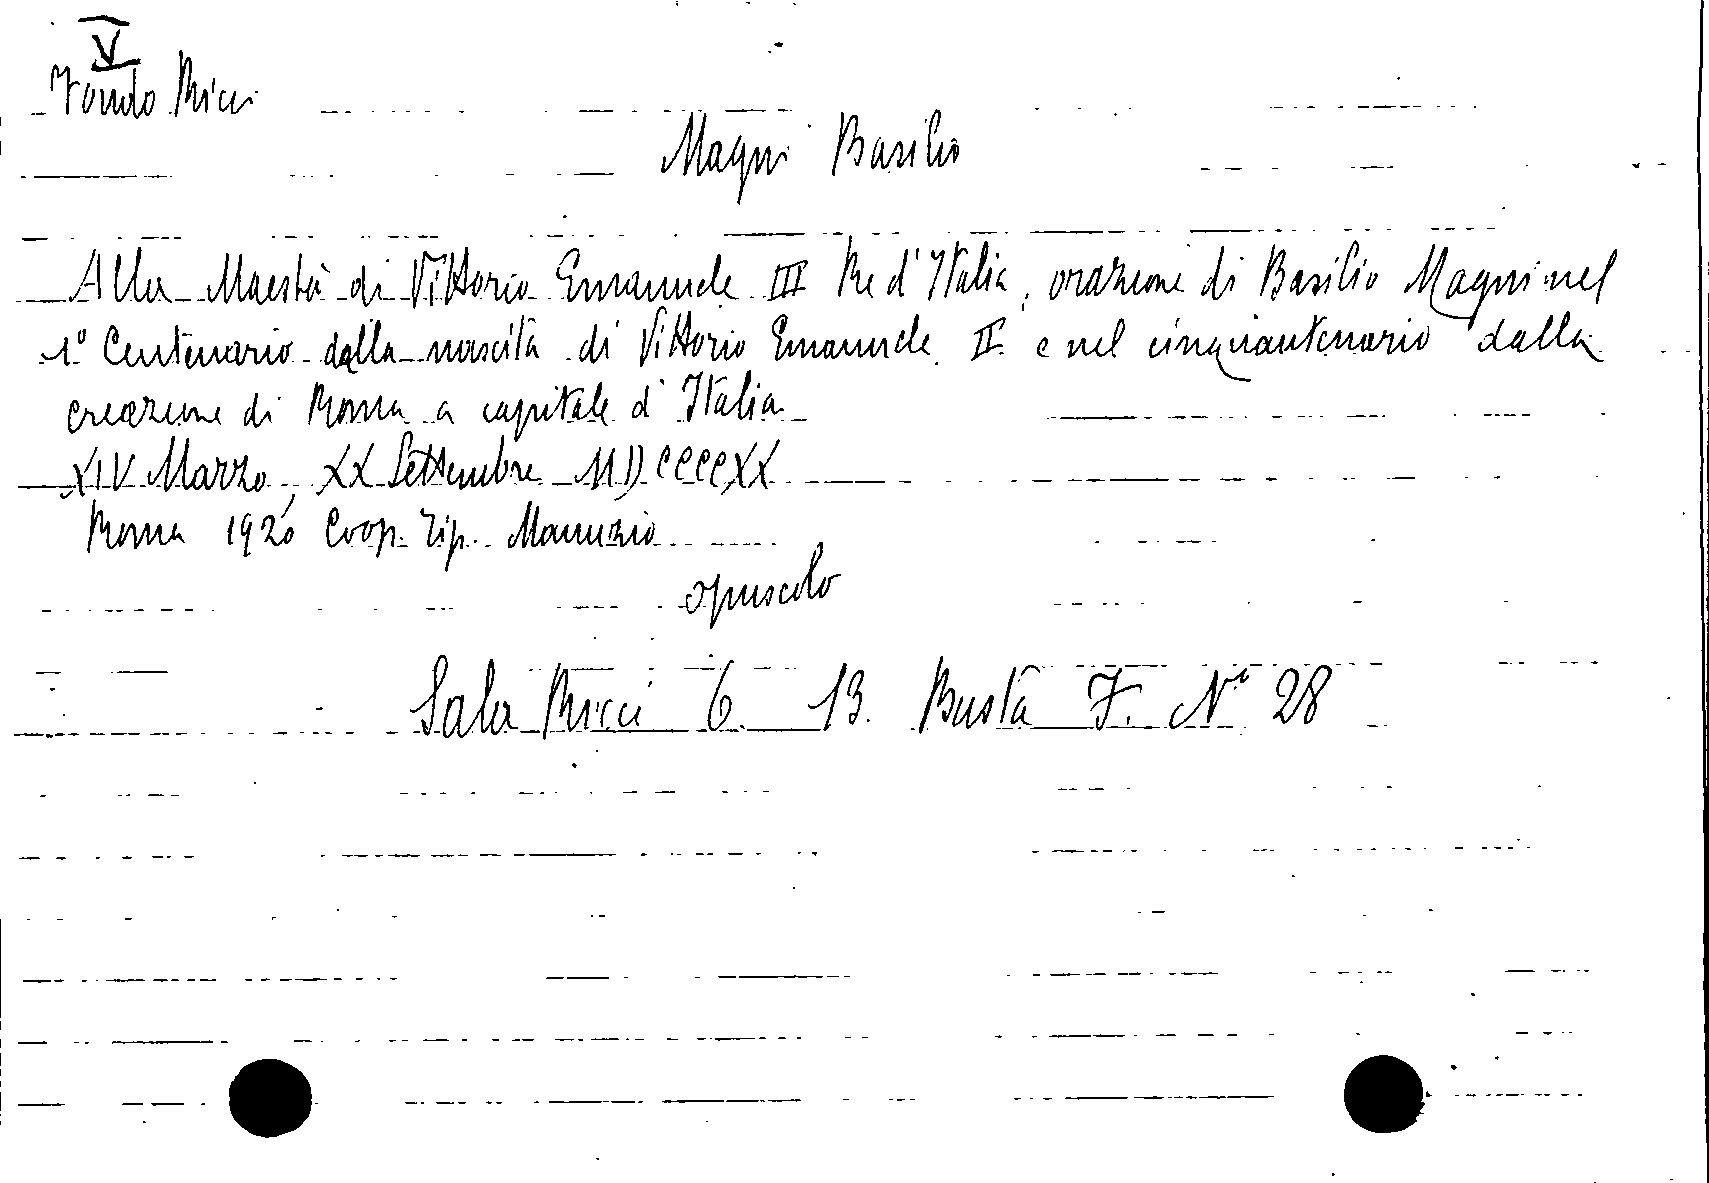 V
Fondo Ricci
Magni Basilio
Alla Maestà di Vittorio Emanuele III Re d'Italia, orazione di Basilio Magni nel
1° Centenario dalla nascita di Vittorio Emanuele II e nel cinquantenario dalla
creazione di Roma a capitale d'Italia
XIV Marzo, XX Settembre MDCCCCXX
Roma 1920 Coop. Tip. Manuzio
opuscolo
Sala Ricci 6. 13. Busta F. N° 28